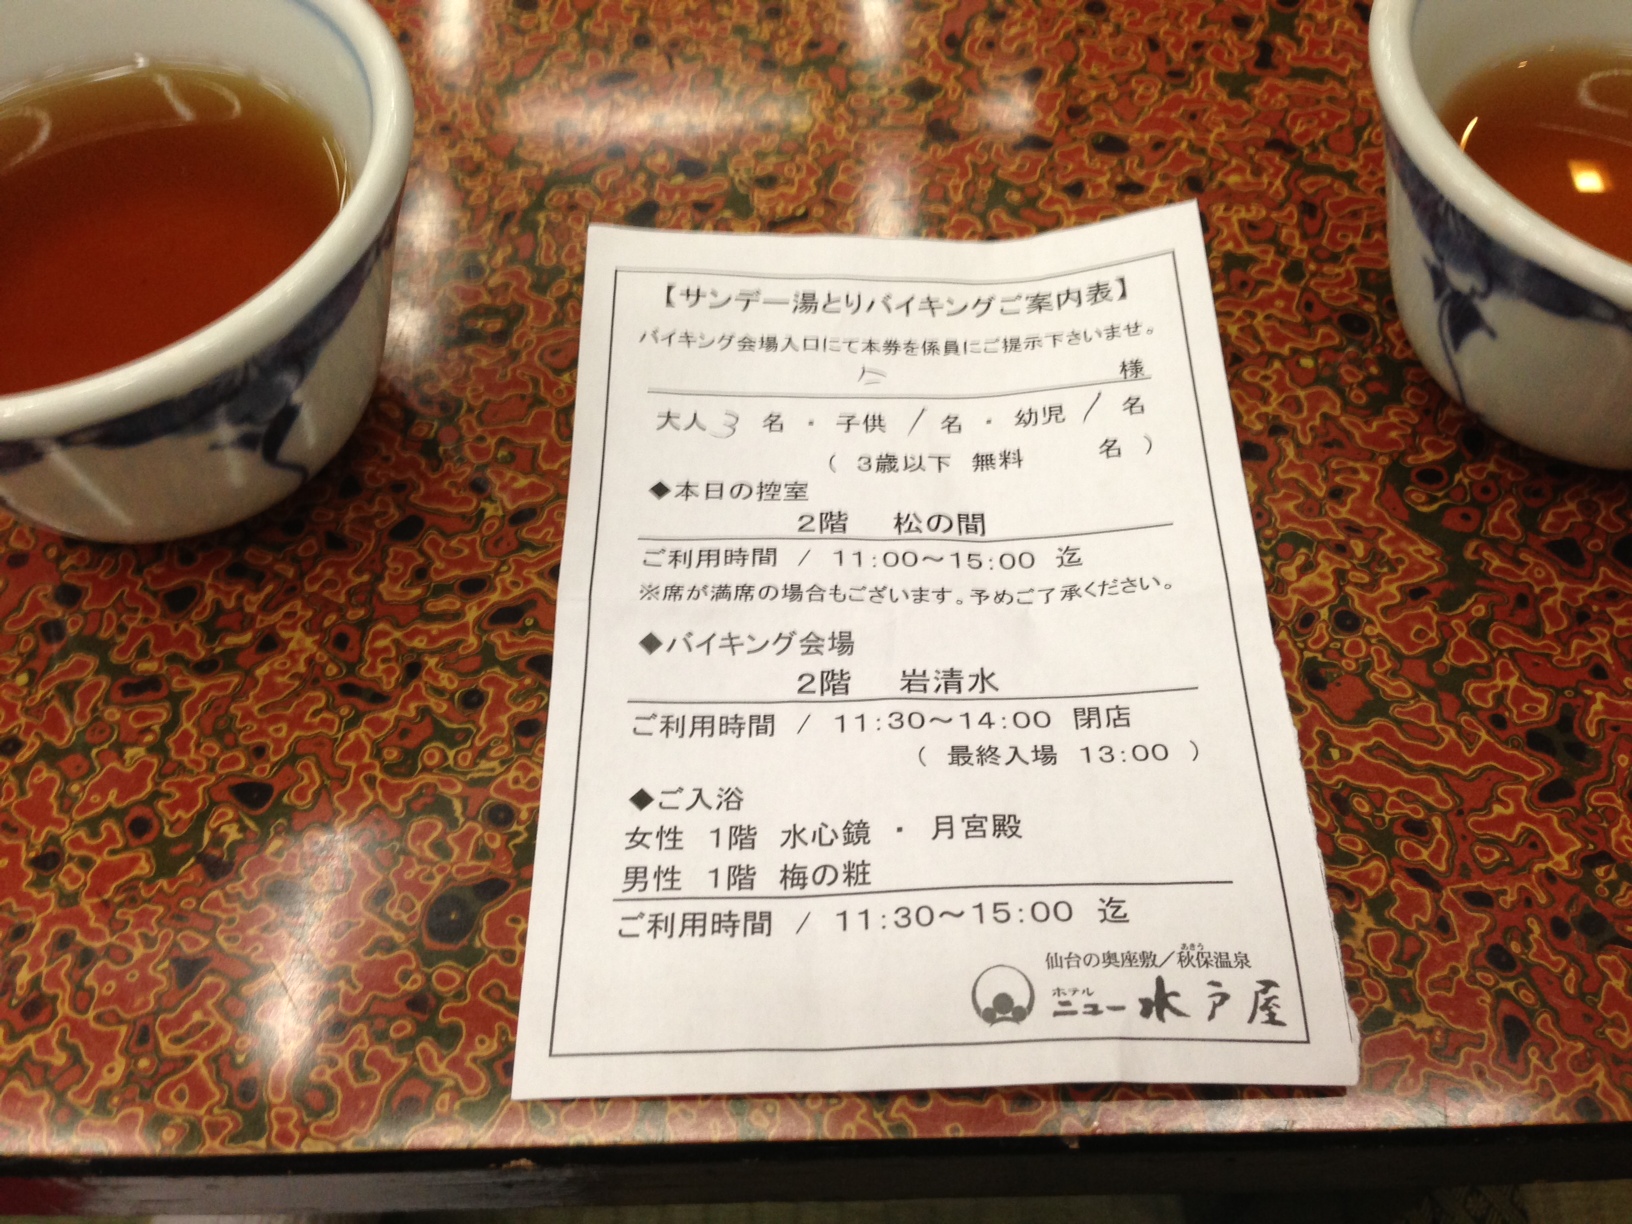 【サンデー湯とりバイキングご案内表】
バイキング会場入口にて本券を係員にご提示下さいませ。
様
大人 3 名 ・ 子供 / 名 ・ 幼児 / 名
( 3歳以下 無料 名 )
◆本日の控室
2階 松の間
ご利用時間 / 11:00～15:00 迄
※席が満席の場合もございます。予めご了承ください。
◆バイキング会場
2階 岩清水
ご利用時間 / 11:30～14:00 閉店
( 最終入場 13:00 )
◆ご入浴
女性 1階 水心鏡 ・ 月宮殿
男性 1階 梅の粧
ご利用時間 / 11:30～15:00 迄
あきう
仙台の奥座敷／秋保温泉
ホテル
ニュー水戸屋